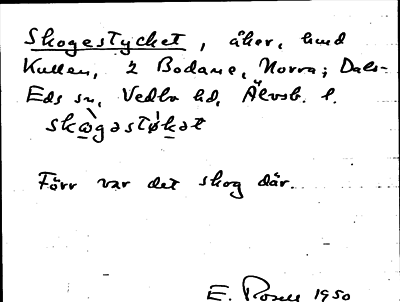 Skogestycket, åker, hmd
Kullen, 2 Bodane, Norra; Dals-
Eds sn, Vedbo hd, Älvsb. l.
skὼgəstøkət
Förr var det skog där.
E. Rosell 1950